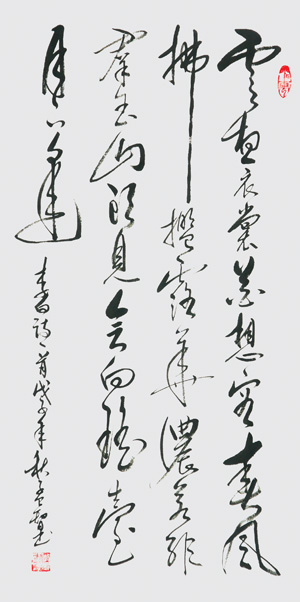 雲想衣裳花想容春風
拂檻露華濃若非
群玉山頭見會向瑤臺
月下逢
李白詩一首戊子年秋